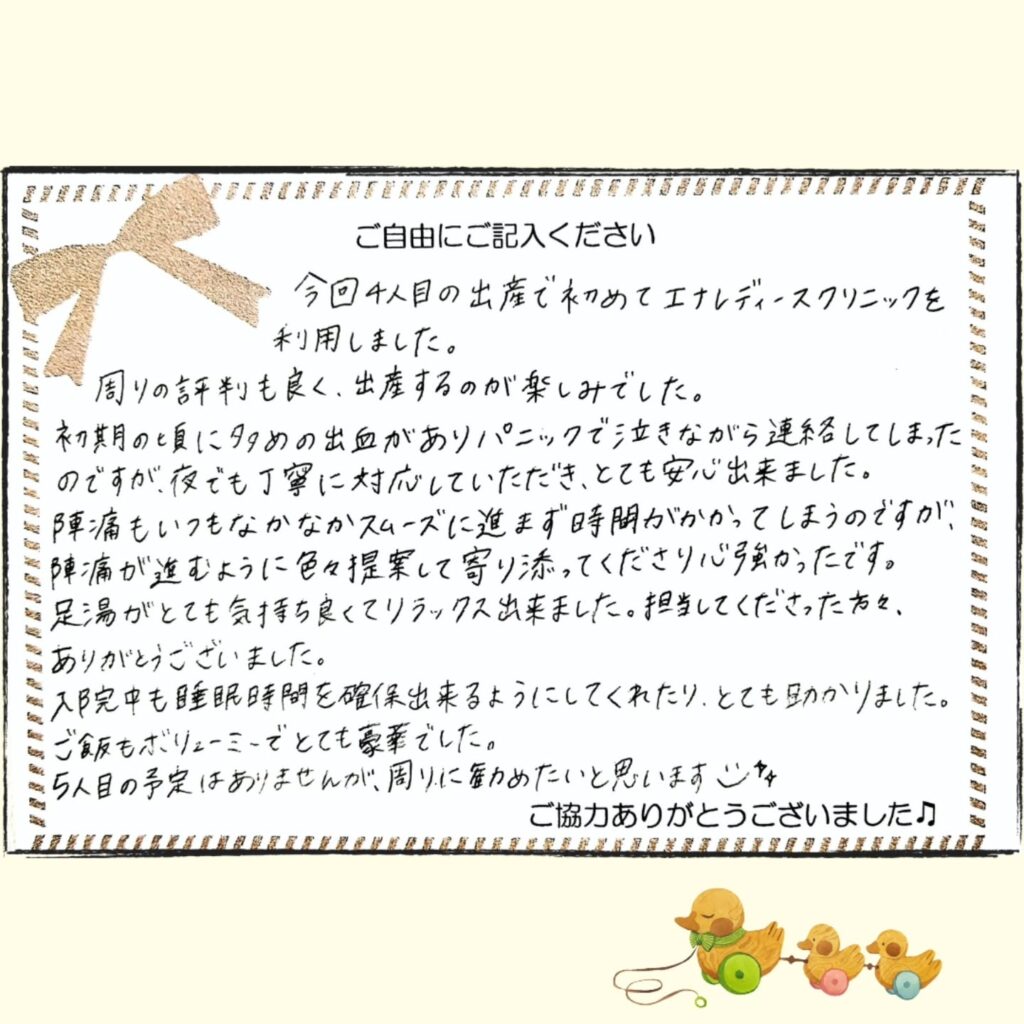 ご自由にご記入ください
今回4人目の出産で初めてエナレディースクリニックを
利用しました。
周りの評判も良く、出産するのが楽しみでした。
初期の頃に多めの出血がありパニックで泣きながら連絡してしまった
のですが、夜でも丁寧に対応していただき、とても安心出来ました。
陣痛もいつもなかなかスムーズに進まず時間がかかってしまうのですが、
陣痛が進むように色々提案して寄り添ってくださり心強かったです。
足湯がとても気持ち良くてリラックス出来ました。担当してくださった方々、
ありがとうございました。
入院中も睡眠時間を確保出来るようにしてくれたり、とても助かりました。
ご飯もボリューミーでとても豪華でした。
5人目の予定はありませんが、周りに勧めたいと思います
ご協力ありがとうございました♫